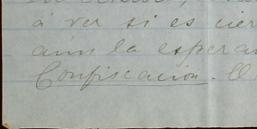 á ver si es cier
aún la espera
Confiscación.